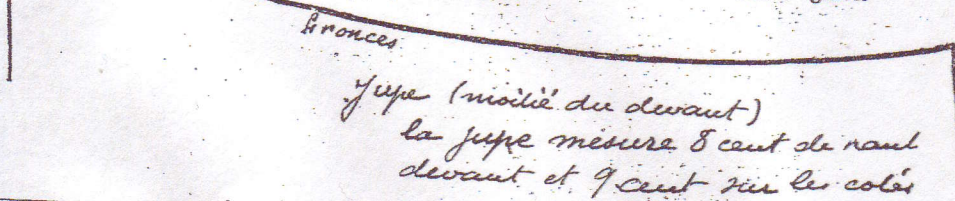 fronces
Jupe (moitié du devant)
la jupe mesure 8 cent de haut
devant et 9 cent sur les cotés